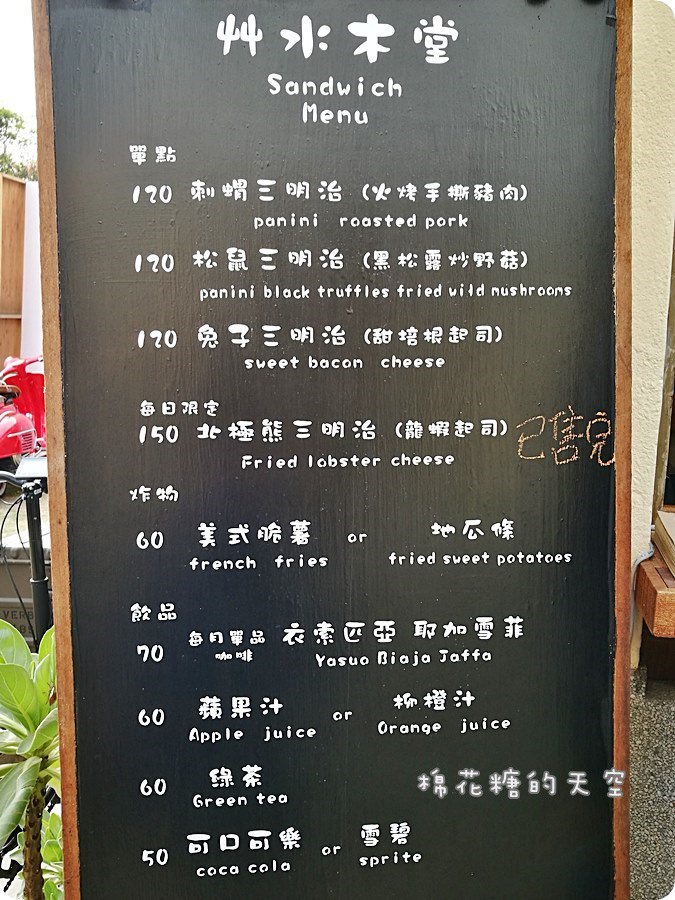 艸水木堂
Sandwich
Menu
單點
120 刺蝟三明治 (火烤手撕豬肉)
panini roasted pork
120 松鼠三明治 (黑松露炒野菇)
panini black truffles fried wild mushrooms
120 兔子三明治 (甜培根起司)
sweet bacon cheese
每日限定
150 北極熊三明治 (龍蝦起司) 已售完
Fried lobster cheese
炸物
60 美式脆薯 or 地瓜條
french fries fried sweet potatoes
飲品
70 每月單品咖啡 衣索匹亞 耶加雪菲
Yasuo Biaja Jaffa
60 蘋果汁 or 柳橙汁
Apple juice Orange juice
60 綠茶
Green tea
50 可口可樂 or 雪碧
coca cola sprite
棉花糖的天空
VERB